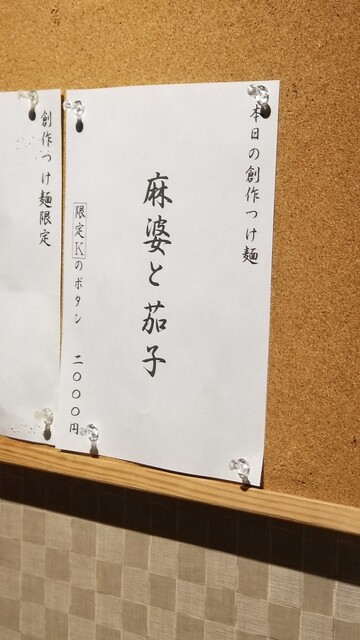 本日の創作つけ麺
麻婆と茄子
限定Kのボタン 二〇〇〇円
創作つけ麺限定